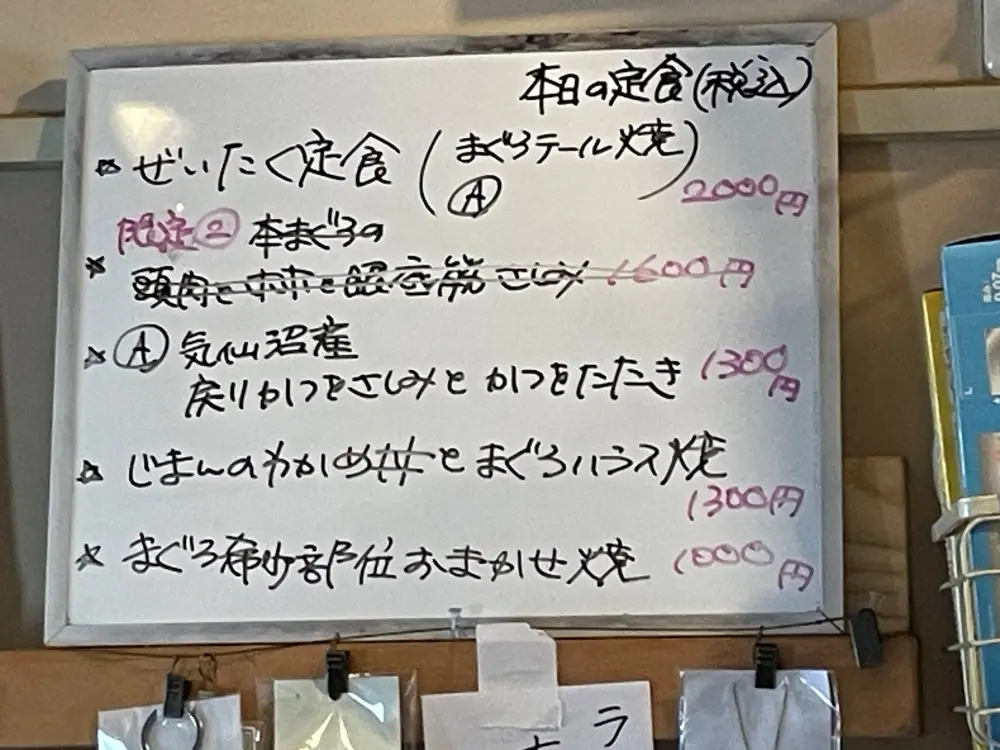 本日の定食(税込)
☆ ぜいたく定食 (まぐろテール焼 Ⓐ) 2000円
限定② 本まぐろの
☆ 頭肉と ホホと 眼 さしみ 1600円
☆ Ⓐ 気仙沼産
戻りかつをさしみと かつをたたき 1300円
☆ じまんのわかめ丼と まぐろハラス焼
1300円
☆ まぐろ希少部位おまかせ焼 1000円
ラ